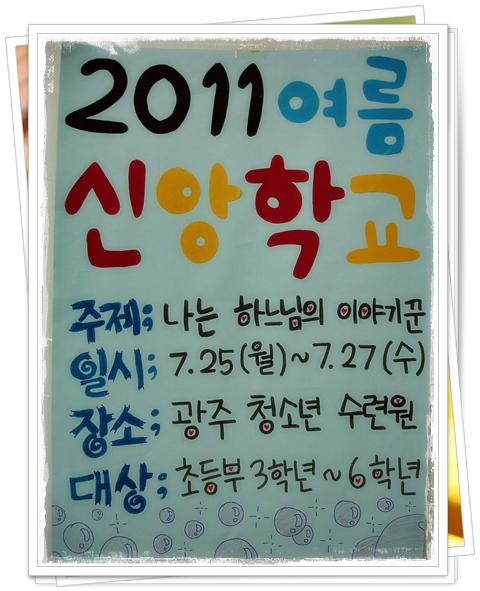 2011 여름
신앙학교
주제; 나는 하느님의 이야기꾼
일시; 7.25(월)~7.27(수)
장소; 광주 청소년 수련원
대상; 초등부 3학년~6학년